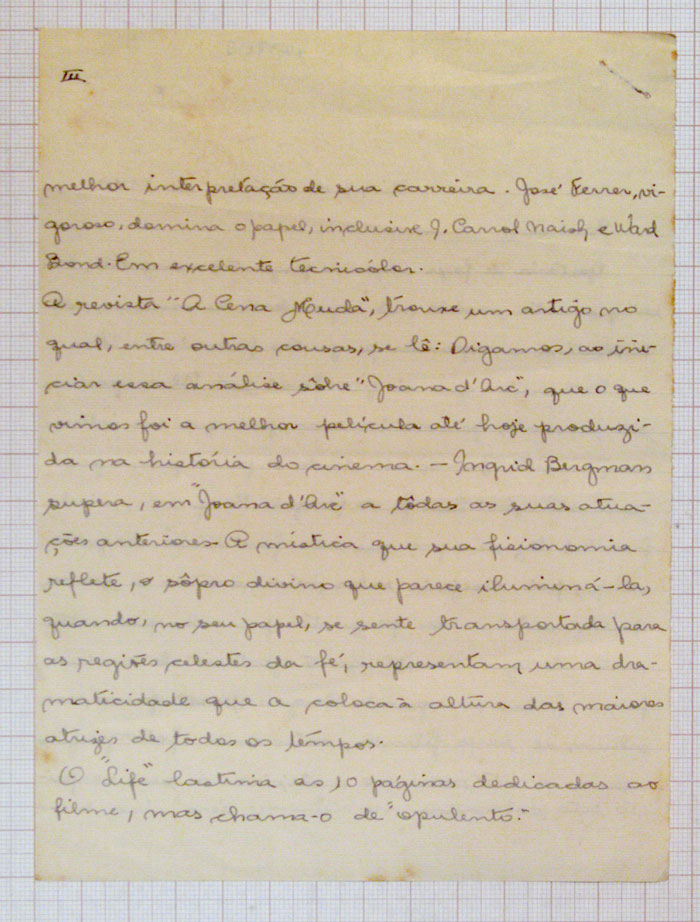 III
melhor interpretação de sua carreira. José Ferrer, vi-
goroso, domina o papel, inclusive J. Carrol Naish e Ward
Bond. Em excelente tecnicólor.
A revista "A Cena Muda", trouxe um artigo no
qual, entre outras cousas, se lê: Digamos, ao ini-
ciar essa análise sôbre "Joana d'Arc", que o que
vimos foi a melhor película até hoje produzi-
da na história do cinema. – Ingrid Bergman
supera, em "Joana d'Arc" a tôdas as suas atua-
ções anteriores. A mística que sua fisionomia
reflete, o sôpro divino que parece iluminá-la,
quando, no seu papel, se sente transportada para
as regiões celestes da fé, representam uma dra-
maticidade que a coloca à altura das maiores
atrizes de todos os tempos.
O "Life" lastima as 10 páginas dedicadas ao
filme, mas chama-o de "opulento".